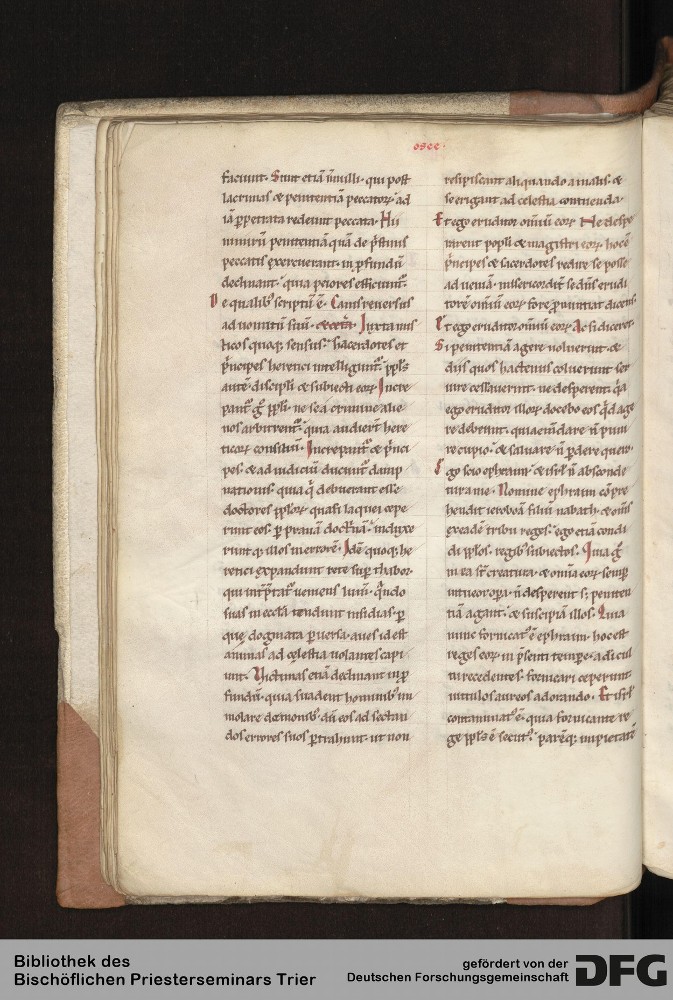 osee.
faciunt. Sunt etiā nōnulli. qui post
lacrimas & penitentiā peccatoꝝ. ad
iā ꝑpetrata redeunt peccata. Hii
nimirū penitentiā quā de p̄stinis
peccatis exercuerant. in ꝓfundū
declinant. quia peiores efficiunt᷑.
De qualibꝰ scriptū ē. Canis reuersus
ad uomitū suū. & cet̄a. Iuxta mis
ticos quoqꝫ sensus. sacerdotes et
p̄ncipes heretici intelligunt᷑. ppl̄s
autē discipli & subiecti eoꝝ. Incre
pant᷑ g̊ ppl̄i. ne se a crimine alie
nos arbitrent᷑. quia audierī here
ticoꝝ consiliū. Increpant᷑ & p̄nci
pes. & ad iudiciū ducunt᷑ dāmp
nationis. quia q̄ debuerant esse
doctores ppl̄oꝝ. quasi laquei cepe
runt eos. ꝑ prauam doct̄nā. induxe
runtqꝫ illos in errorē. Idē quoqꝫ he
retici expandunt rete suꝑ thabor.
qui int̄ptat᷑ ueniens lum̄. Q̄ndo
suas in eccl̄a tendunt insidias. ꝑ
que dogmata ꝑuersa. aues id est
animas ad cęlestia uolantes capi
unt. Victimas etiā declinant in ꝓ
fundū. quia suadent hominibꝰ im
molare demonibꝰ. dū eos ad sectan
dos errores suos ꝑtrahunt. ut non
resipiscant aliquando a malis. &
se erigant ad celestia contuenda.
Et ego eruditor om̄iū eoꝝ. Ne despe
rarent popli & magistri eoꝝ. hoc ē
p̄ncipes & sacerdotes redire se posse
ad ueniā. misericordit̄ se dn̄s erudi
torē om̄iū eoꝝ fore ꝓnuntiat dicens.
Et ego eruditor om̄iū eoꝝ. Ac si diceret.
Si penitentiā agere uoluerint. &
diis quos hactenus coluerunt ser
uire cessauerint. ne desperent. q̄a
ego eruditor illoꝝ docebo eos qd̄ age
re debeant. quia em̄dare n̄ puni
re cupio. & saluare n̄ ꝑdere quero.
Ego scio ephraim. & isrl̄ n̄ abscondi
tur a me. Nomine ephraim cōpre
hendit ieroboā filiū nabath. & om̄s
ex eadē tribu reges. ego etiā condi
di ppl̄os. regibꝰ subiectos. Quia g̊
mea st̄ creatura. & om̄ia eoꝝ semꝑ
intueor oꝑa. n̄ desperent s; peniten
tiā agant. & suscipiā illos. Quia
nunc fornicatꝰ ē ephraim. hoc est
reges eoꝝ in p̄senti tempore. a di cul
tu recedentes. fornicari ceperunt.
in uitulos aureos adorando. Et isrl̄
contaminatꝰ ē. quia fornicante re
ge ppl̄s ē secutꝰ. parēqꝫ impietatē
Bibliothek des
Bischöflichen Priesterseminars Trier
gefördert von der
Deutschen Forschungsgemeinschaft
DFG